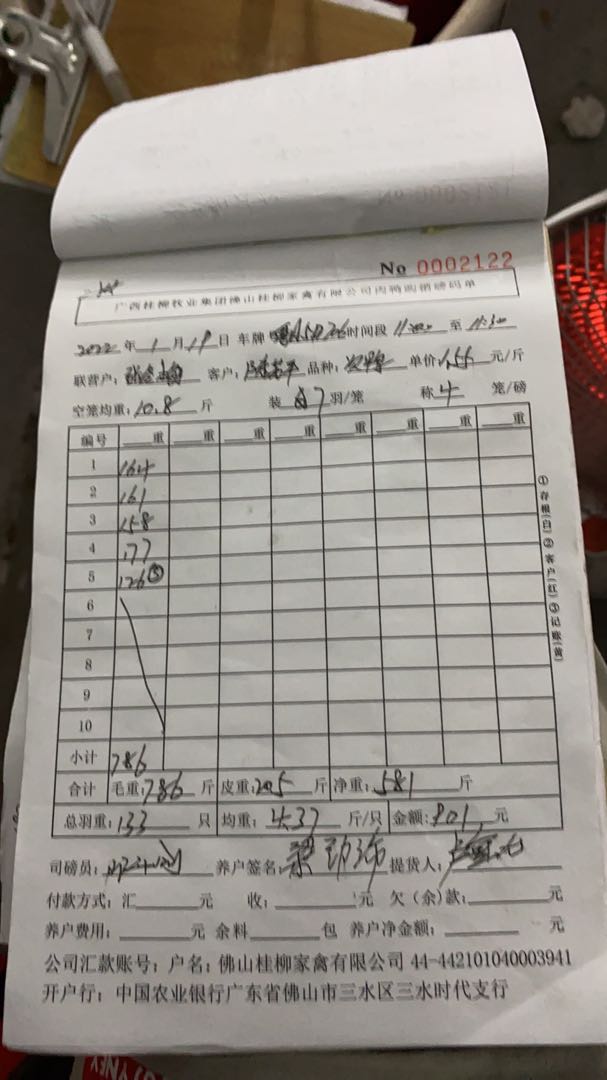 No 0002122
广西桂柳牧业集团佛山桂柳家禽有限公司肉鸭购销磅码单
2022 年 1 月 19 日 车牌 时间段 11:00 至 11:30
联营户: 客户: 品种: 单价 1.55 元/斤
空笼均重: 10.8 斤 装 7 羽/笼 称 4 笼/磅
编号 重 重 重 重 重 重 重 重
1 164
2 161
3 158
4 177
5 126 ③
6
7
8
9
10
小计 786
合计 毛重: 786 斤 皮重: 205 斤 净重: 581 斤
总羽重: 133 只 均重: 4.37 斤/只 金额: 901 元
司磅员: 养户签名: 提货人:
付款方式: 汇 元 收: 元 欠(余)款: 元
养户费用: 元 余料 包 养户净金额: 元
公司汇款账号: 户名: 佛山桂柳家禽有限公司 44-442101040003941
开户行: 中国农业银行广东省佛山市三水区三水时代支行
①存根(白)②客户(红)③记账(黄)